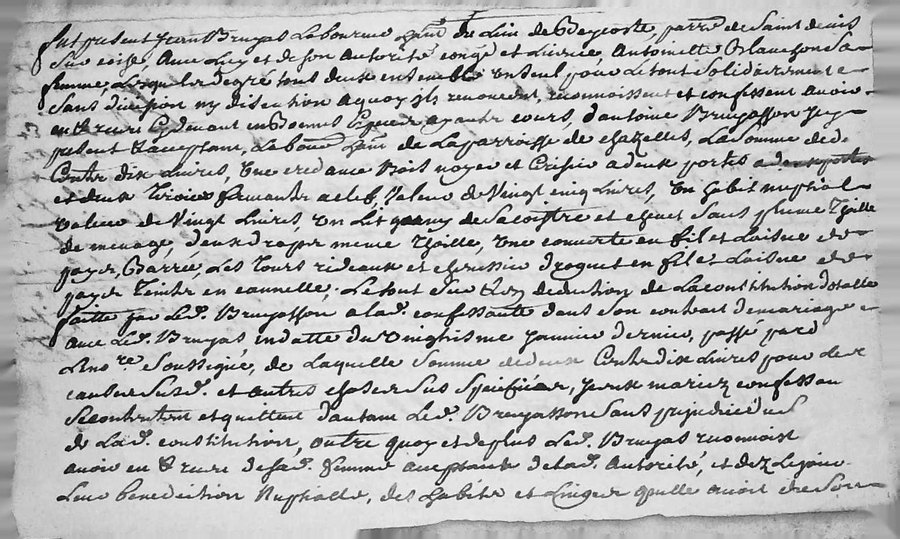 fut present Jean Brugas Laboureur hant du Lieu de Beycoste, parre de Saint denis
Sur coise, Avec Luy et de son Autorité congé et Licence, Antoinette Blanchon Sa
femme, Lesquels de gré tous deux ensemble un seul pour Le tout solidairement
Sans division ny discution a quoy ils renoncent, reconnoissent et confessent avoir
eu & receu Cy devant en Bonnes Especes ayants cours, d'antoine Bruyasson Icy
present & acceptant, Labour hant de La parroisse de chazelles, La Somme de
Cents dix Livres, Une credance Bois noyer et Cerisier a deux portes
et deux Tiroirs fermante a clef, Valeur de Vingt cinq Livres, Un habit nuptial
valeur de Vingt Livres, Un Lit garny de et chevet Sans plume Thoille
de menage, deux draps meme Thoille, Une couverte en fil et Laisne de
payer, Barrée, Les Tours rideaux et droguet en fil & Laisne de
payer Teinte en cannelle; Le tout Sur & en deduction de La constitution dotalle
faitte par Led. Bruyasson a lad. confessante dans son contrat de mariage
avec Led. Brugas en datte du Vingtiesme Janvier dernier, passé pard
Le nore Soussigné, de Laquelle Somme de deux Cents dix Livres pour Les
causes Susd. et autres choses sus Speciffiées, Jceux mariez confessent
Se contentent et quittent d'autant Led. Bruyasson Sans prejudice du
de La d. constitution, outre quoy et de plus Led. Brugas reconnoist
avoir eu & receu de sad. femme acceptante de lad. Autorité, et dez Le jour
Leur benediction Nuptialle, des habits et Linges qu'elle avoit de Son